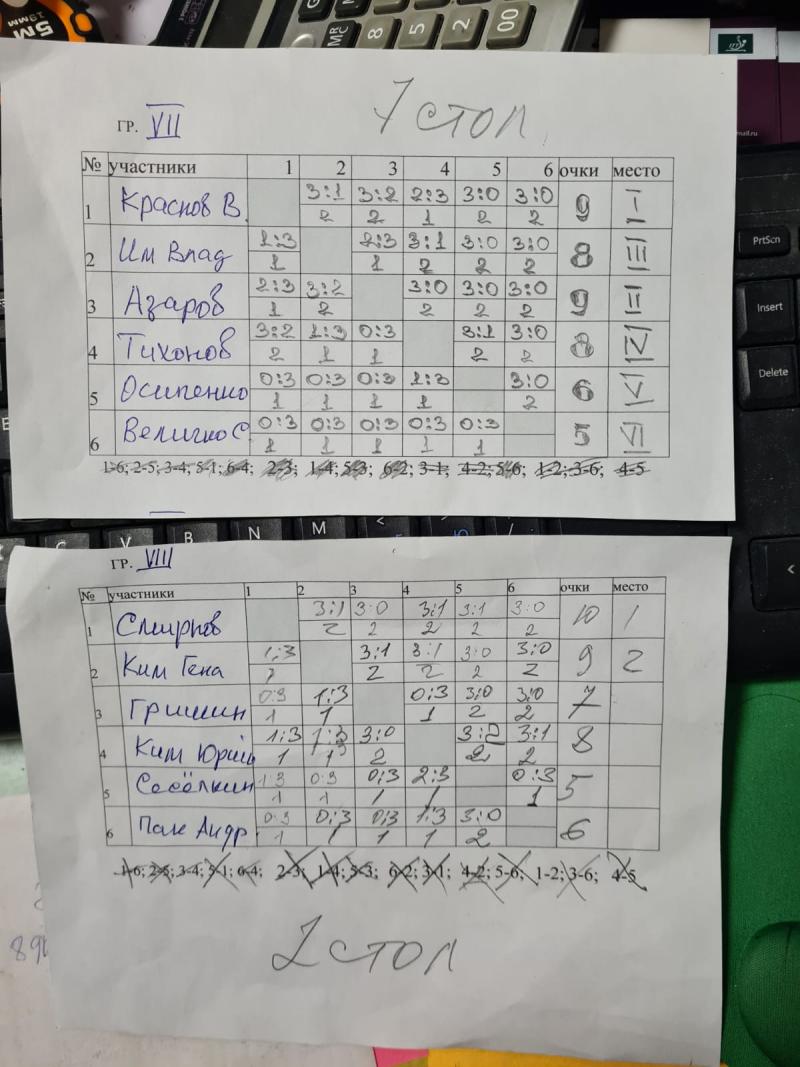 5M
19MM
MR
MC
8
5
2
00
ITTF
mail.ru
7 стол
ГР. VII
№ участники 1 2 3 4 5 6 очки место
1 Краснов В. 3:1 3:2 2:3 3:0 3:0 9 I
2 2 1 2 2
2 Им Влад 1:3 2:3 3:1 3:0 3:0 8 III
1 1 2 2 2
3 Азаров 2:3 3:2 3:0 3:0 3:0 9 II
1 2 2 2 2
4 Тихонов 3:2 1:3 0:3 3:1 3:0 8 IV
2 1 1 2 2
5 Осипенко 0:3 0:3 0:3 1:3 3:0 6 V
1 1 1 1 2
6 Величко С 0:3 0:3 0:3 0:3 0:3 5 VI
1 1 1 1 1
1-6; 2-5; 3-4; 5-1; 6-4; 2-3; 1-4; 5-3; 6-2; 3-1; 4-2; 5-6; 1-2; 3-6; 4-5
PrtScn
Insert
Delete
C V B N M <
ГР. VIII
№ участники 1 2 3 4 5 6 очки место
1 Смирнов 3:1 3:0 3:1 3:1 3:0 10 1
2 2 2 2 2
2 Ким Гена 1:3 3:1 3:1 3:0 3:0 9 2
1 2 2 2 2
3 Гришин 0:3 1:3 0:3 3:0 3:0 7
1 1 1 2 2
4 Ким Юрий 1:3 1:3 3:0 3:2 3:1 8
1 1 2 2 2
5 1:3 0:3 0:3 2:3 0:3 5
1 1 1 1 1
6 Пак Андр 0:3 0:3 0:3 1:3 3:0 6
1 1 1 1 2
1-6; 2-5; 3-4; 5-1; 6-4; 2-3; 1-4; 5-3; 6-2; 3-1; 4-2; 5-6; 1-2; 3-6; 4-5
2 стол